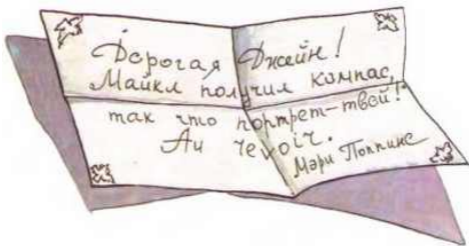 Дорогая Джейн!
Майкл получил компас,
так что портрет-твой!
Au revoir.
Мэри Поппинс